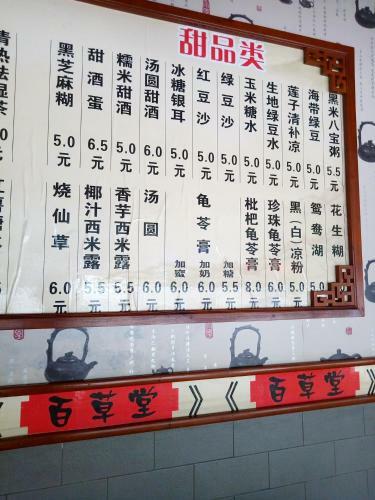 甜品类
黑米八宝粥 5.5元
海带绿豆 5.0元
莲子清补凉 5.0元
生地绿豆水 5.0元
玉米糖水 5.0元
绿豆沙 5.0元
红豆沙 5.0元
冰糖银耳 5.0元
汤圆甜酒 6.0元
糯米甜酒 5.0元
甜酒蛋 6.5元
黑芝麻糊 5.0元
清热祛湿茶
花生糊 5.0元
鸳鸯湖 5.0元
黑(白)凉粉 5.0元
珍珠龟苓膏 6.0元
枇杷龟苓膏 8.0元
龟苓膏
加糖 5.5元
加奶 6.0元
加蜜 6.0元
汤圆 5.0元
香芋西米露 5.5元
椰汁西米露 5.5元
烧仙草 6.0元
百草堂
百草堂